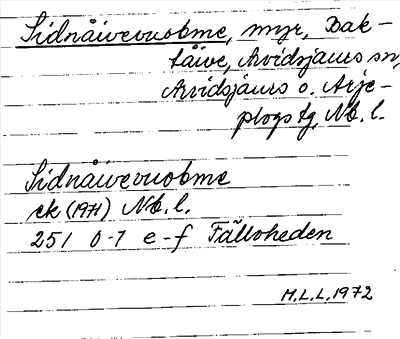 Sidnåivevuobme, myr, Bak-
tåive, Arvidsjaurs sn,
Arvidsjaurs o. Arje-
plogs tg, Nb. l.
Sidnåivevuobme
ek (1971) Nb. l.
251 0-1 e-f Fälloheden
M.L.L. 1972